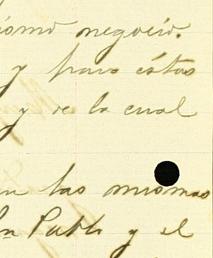 mismo negocio.
y para éstas
y de la cual
en las mismas
Pablo y el